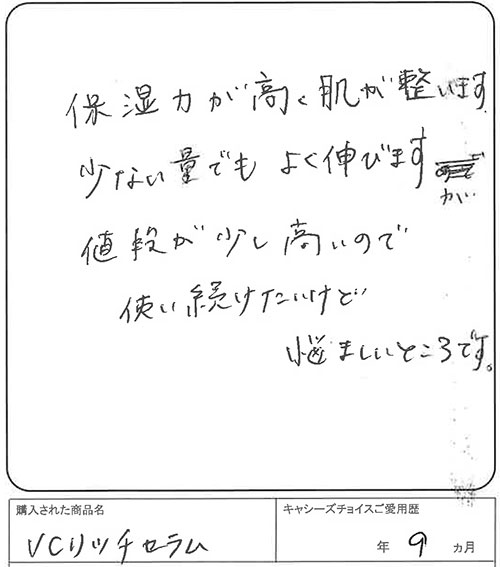 保湿力が高く肌が整います
少ない量でも よく伸びます
が
値段が少し高いので
使い続けたいけど
悩ましいところです。
購入された商品名
キャシーズチョイスご愛用歴
VCリッチセラム
年 9 ヵ月